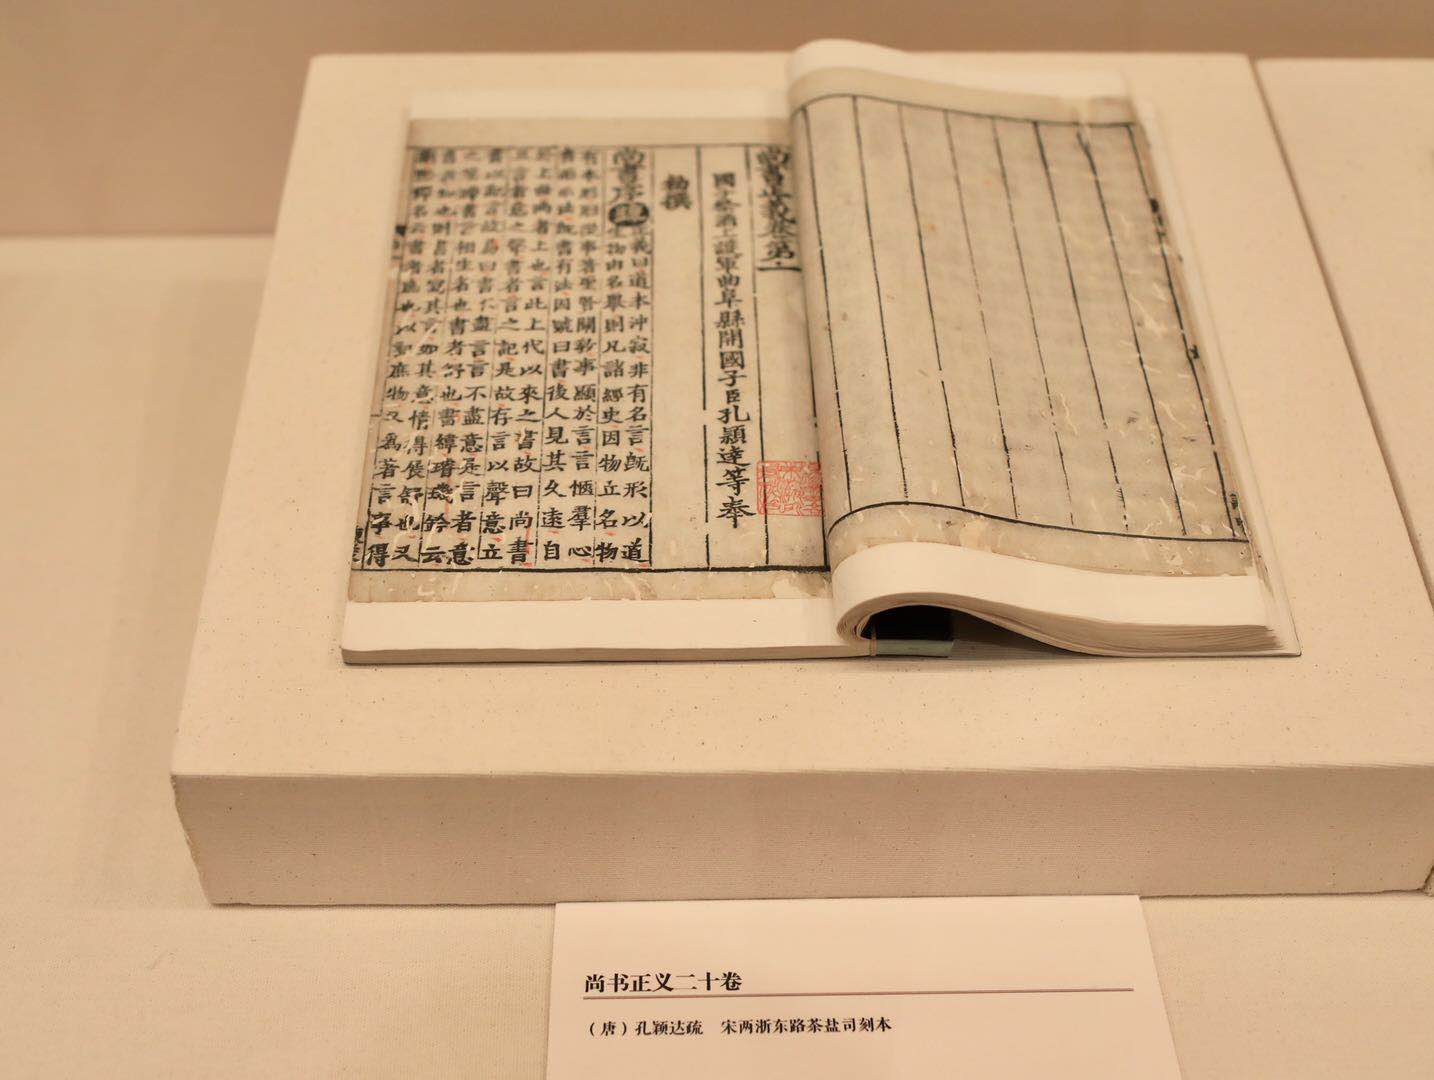 尚書正義卷第一
國子祭酒上護軍曲阜縣開國子臣孔穎達等奉
勑撰
尚書序 疏 正義曰道本沖寂非有名言既形以道
生物由名舉則凡諸經史因物立名物
有本形形從事著聖賢闡教事顯於言言愜羣心
書而示法既書有法因號曰書後人見其久遠自
於上世尚者上也言此上代以來之書故曰尚書
且言者意之聲書者言之記是故存言以聲意立
書以記言故易曰書不盡言言不盡意是言者意
之筌蹄書言相生者也書者舒也書緯璿璣鈐云
書者如也則書者寫其言如其意情得展舒也又
劉熙釋名云書者庶也以記庶物又為著言事得
尚书正义二十卷
（唐）孔颖达疏　宋两浙东路茶盐司刻本